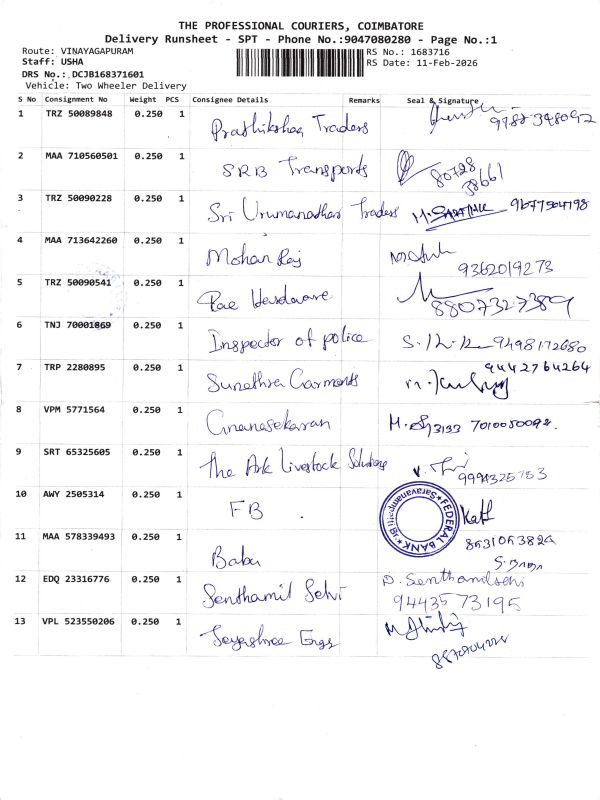 THE PROFESSIONAL COURIERS, COIMBATORE
Delivery Runsheet - SPT - Phone No.:9047080280 - Page No.:1
Route: VINAYAGAPURAM
RS No.: 1683716
Staff: USHA
RS Date: 11-Feb-2026
DRS No.: DCJB168371601
Vehicle: Two Wheeler Delivery
S No Consignment No Weight PCS Consignee Details Remarks Seal & Signature
1 TRZ 50089848 0.250 1 Prathikshaa Traders
2 MAA 710560501 0.250 1 SRB Transports 80728
38661
3 TRZ 50090228 0.250 1 Sri Urumanathar Traders 9677504798
4 MAA 713642260 0.250 1 Mohan Raj
9362019273
5 TRZ 50090541 0.250 1 Rae Hardware
8807327389
6 TNJ 70001869 0.250 1 Inspector of police 9498172680
7 TRP 2280895 0.250 1 Sunethra Garments 9442764264
8 VPM 5771564 0.250 1 Gnanasekaran 7010050092.
9 SRT 65325605 0.250 1 The Ark Livestock Solutions
10 AWY 2505314 0.250 1 FB FEDERAL BANK
11 MAA 578339493 0.250 1 Babu
S. Babu
12 EDQ 23316776 0.250 1 Senthamil Selvi D. Senthamilselvi
94435 73195
13 VPL 523550206 0.250 1 Jeyashree Engs